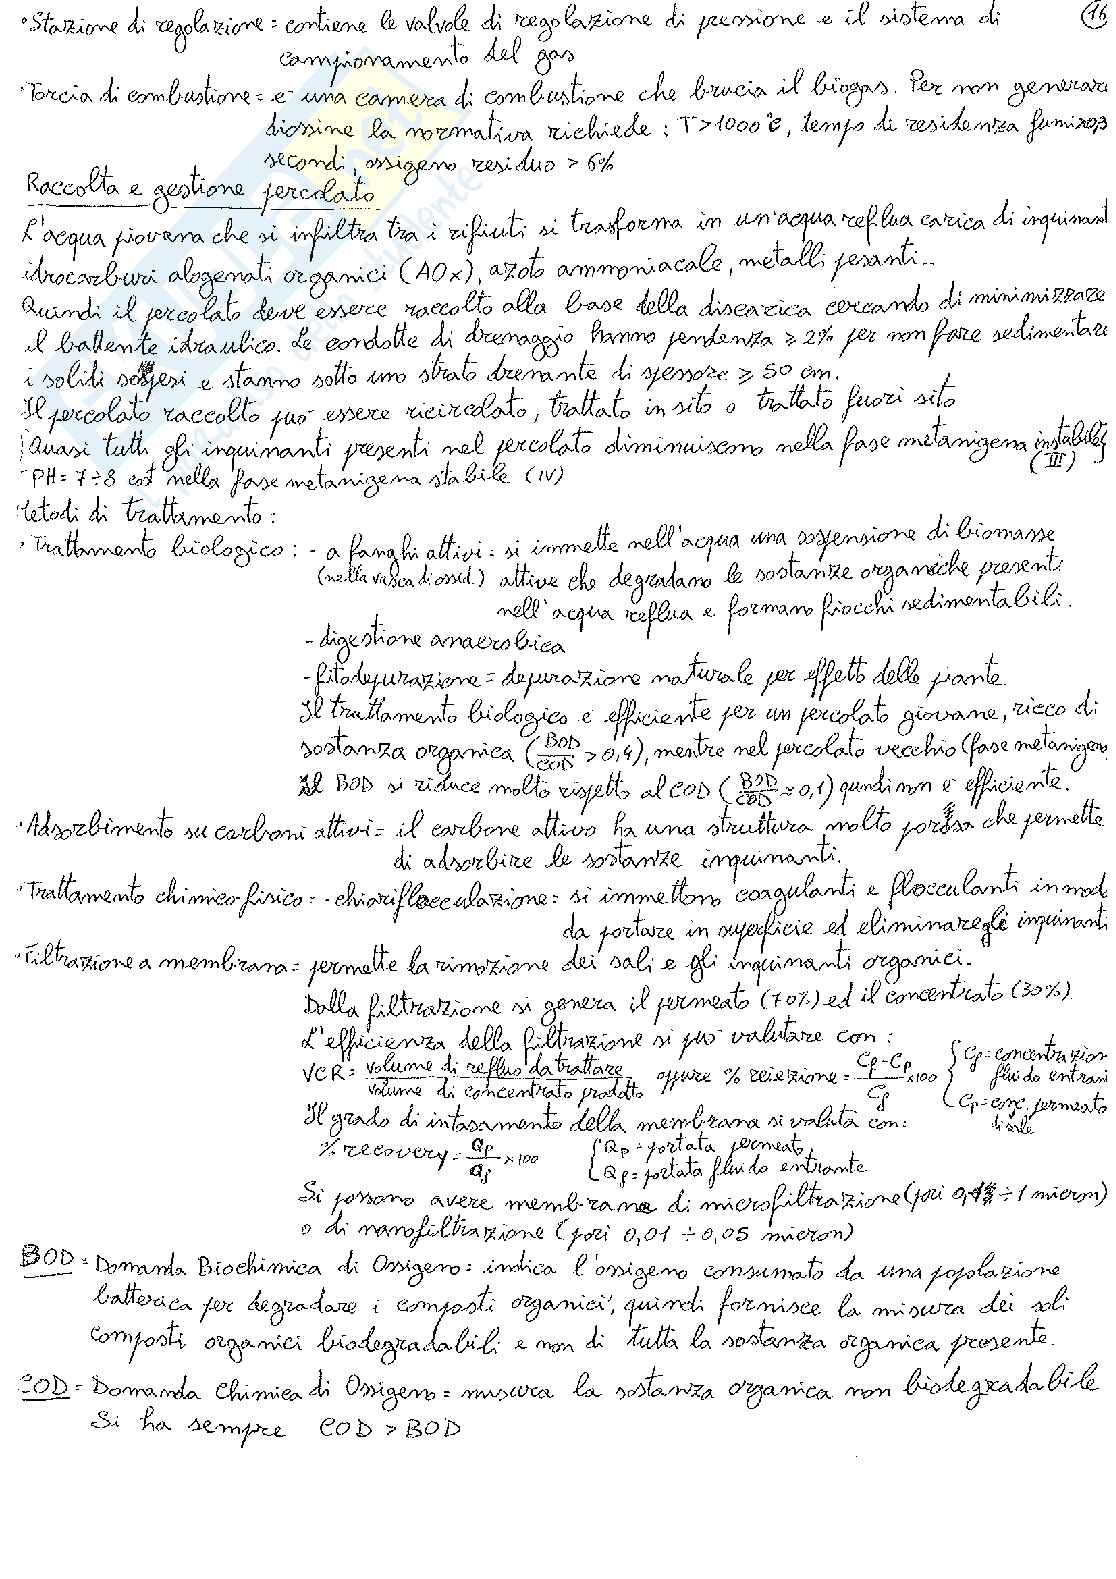 • Stazione di regolazione = contiene le valvole di regolazione di pressione e il sistema di 16
campionamento del gas
• Torcia di combustione = e' una camera di combustione che brucia il biogas. Per non generare
diossine la normativa richiede: T>1000°C, tempo di residenza fumi>0,3
secondi, ossigeno residuo > 6%
Raccolta e gestione percolato
L'acqua piovana che si infiltra tra i rifiuti si trasforma in un'acqua reflua carica di inquinant
idrocarburi alogenati organici (AOx), azoto ammoniacale, metalli pesanti..
Quindi il percolato deve essere raccolto alla base della discarica cercando di minimizzare
il battente idraulico. Le condotte di drenaggio hanno pendenza ≥ 2% per non fare sedimentare
i solidi sospesi e stanno sotto uno strato drenante di spessore ≥ 50 cm.
Il percolato raccolto può essere ricircolato, trattato in sito o trattato fuori sito
Quasi tutti gli inquinanti presenti nel percolato diminuiscono nella fase metanigena instabile
(III)
- PH = 7÷8 cost nella fase metanigena stabile (IV)
Metodi di trattamento:
• Trattamento biologico: - a fanghi attivi = si immette nell'acqua una sospensione di biomasse
(nella vasca di ossid.) attive che degradano le sostanze organiche presenti
nell'acqua reflua e formano fiocchi sedimentabili.
- digestione anaerobica
- fitodepurazione = depurazione naturale per effetto delle piante
Il trattamento biologico e' efficiente per un percolato giovane, ricco di
sostanza organica (BOD/COD > 0,4), mentre nel percolato vecchio (fase metanigen
Il BOD si riduce molto rispetto al COD (BOD/COD ≈ 0,1) quindi non e' efficiente.
• Adsorbimento su carboni attivi = il carbone attivo ha una struttura molto porosa che permette
di adsorbire le sostanze inquinanti.
• Trattamento chimico-fisico = - chiariflocculazione = si immettono coagulanti e flocculanti in mod
da portare in superficie ed eliminare gli inquinanti
• Filtrazione a membrana = permette la rimozione dei sali e gli inquinanti organici.
Dalla filtrazione si genera il permeato (70%) ed il concentrato (30%)
L'efficienza della filtrazione si può valutare con:
VCR = volume di refluo da trattare / volume di concentrato prodotto oppure % reiezione = Cf-Cp / Cf ×100 { Cf = concentrazion fluido entran
Cp = conc. permeato di sale
Il grado di intasamento della membrana si valuta con:
% recovery = Qp/Qf ×100 { Qp = portata permeato
Qf = portata fluido entrante
Si possono avere membrane di microfiltrazione (pori ÷ 1 micron)
o di nanofiltrazione (pori 0,01 ÷ 0,05 micron)
BOD = Domanda Biochimica di Ossigeno = indica l'ossigeno consumato da una popolazione
batterica per degradare i composti organici, quindi fornisce la misura dei soli
composti organici biodegradabili e non di tutta la sostanza organica presente.
COD = Domanda Chimica di Ossigeno = misura la sostanza organica non biodegradabile
Si ha sempre COD > BOD